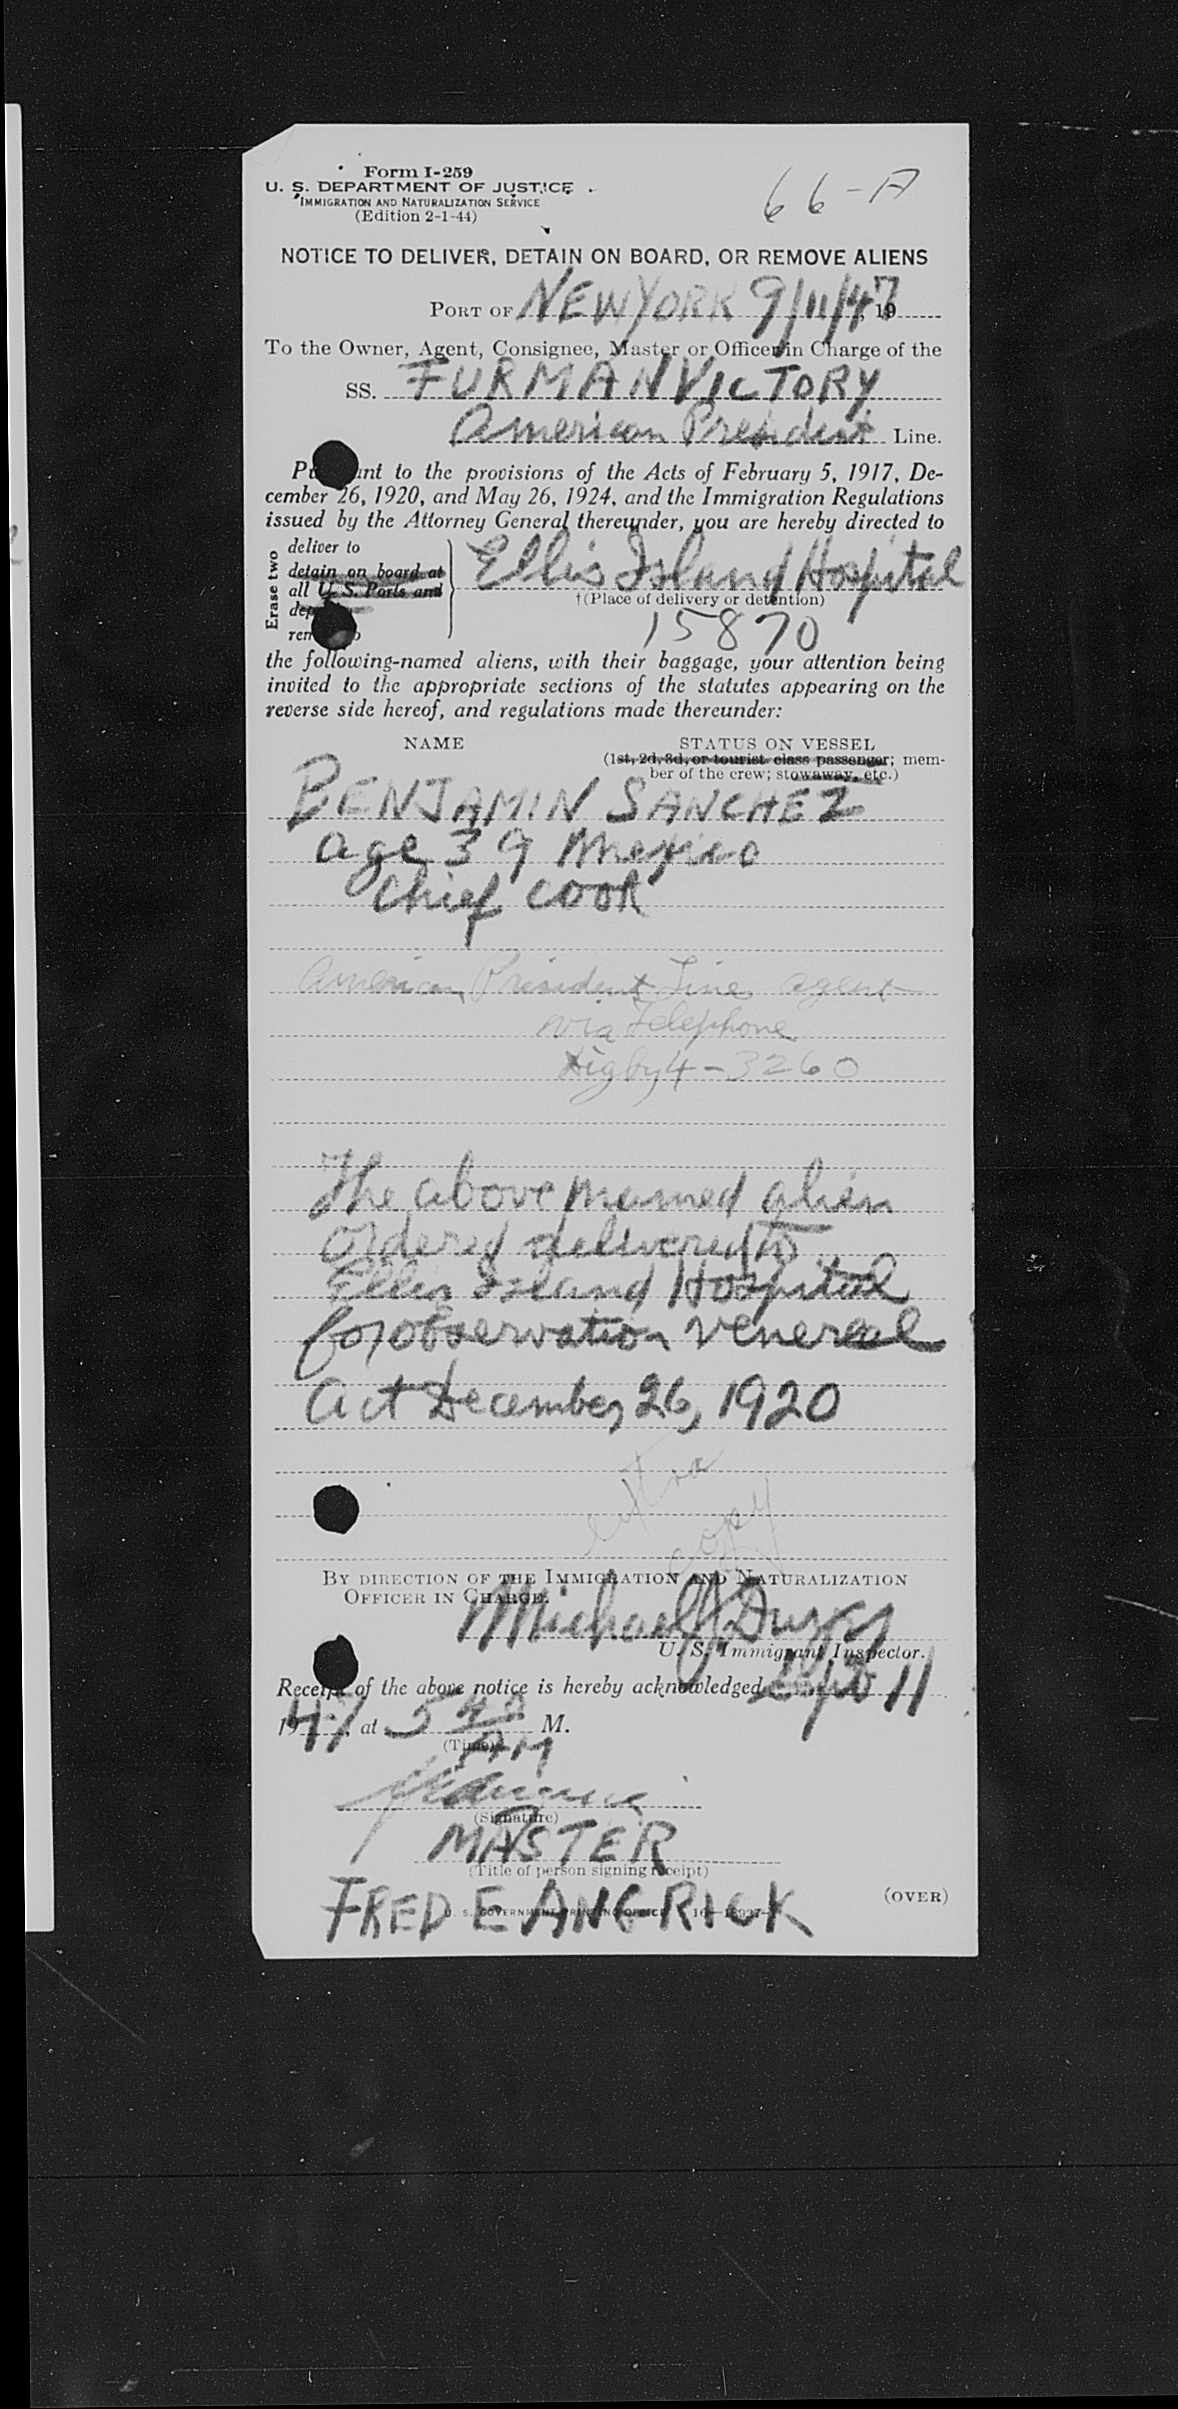 Form I-259
U. S. DEPARTMENT OF JUSTICE
IMMIGRATION AND NATURALIZATION SERVICE
(Edition 2-1-44)
66-A
NOTICE TO DELIVER, DETAIN ON BOARD, OR REMOVE ALIENS
PORT OF NEW YORK 9/11/47, 19
To the Owner, Agent, Consignee, Master or Officer in Charge of the
SS. FURMAN VICTORY
American President Line.
Pursuant to the provisions of the Acts of February 5, 1917, De-
cember 26, 1920, and May 26, 1924, and the Immigration Regulations
issued by the Attorney General thereunder, you are hereby directed to
Erase two
deliver to
detain on board at
all U. S. Ports and
Ellis Island Hospital
†(Place of delivery or detention)
15870
the following-named aliens, with their baggage, your attention being
invited to the appropriate sections of the statutes appearing on the
reverse side hereof, and regulations made thereunder:
NAME STATUS ON VESSEL
(1st, 2d, 3d, or tourist class passenger; mem-
ber of the crew; stowaway, etc.)
BENJAMIN SANCHEZ
age 39 Mexico
Chief cook
American President Line agent
via Telephone
Digby 4-3260
The above named alien
ordered delivered to
Ellis Island Hospital
for observation venereal
Act December 26, 1920
extra
copy
BY DIRECTION OF THE IMMIGRATION AND NATURALIZATION
OFFICER IN CHARGE.
Michael J
U. S. Immigrant Inspector.
Receipt of the above notice is hereby acknowledged Sept 11
1947, at 5 40 M.
(Time) AM
(Signature)
MASTER
(Title of person signing receipt)
FRED E ANGRICK
U. S. GOVERNMENT PRINTING OFFICE
(OVER)